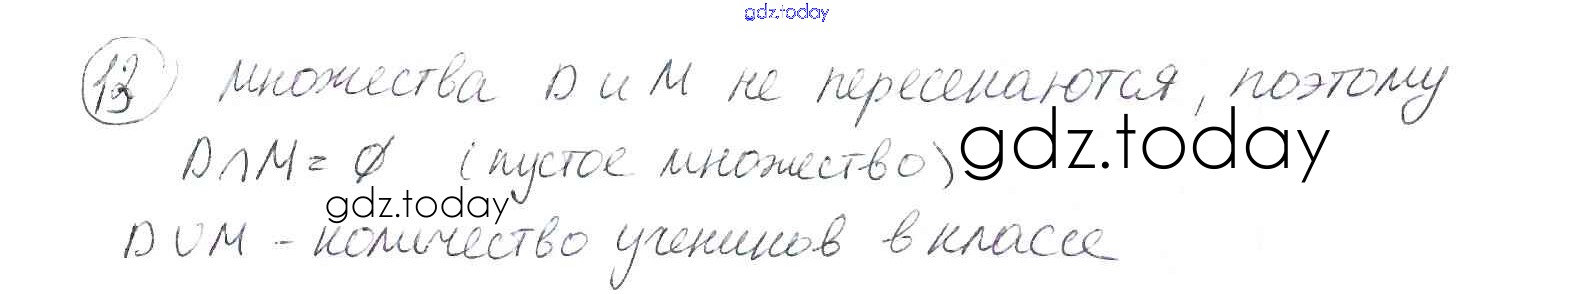 gdz.today
13 Множества D и М не пересекаются, поэтому
D∩M = ∅ (пустое множество) gdz.today
gdz.today
D∪M - количество учеников в классе